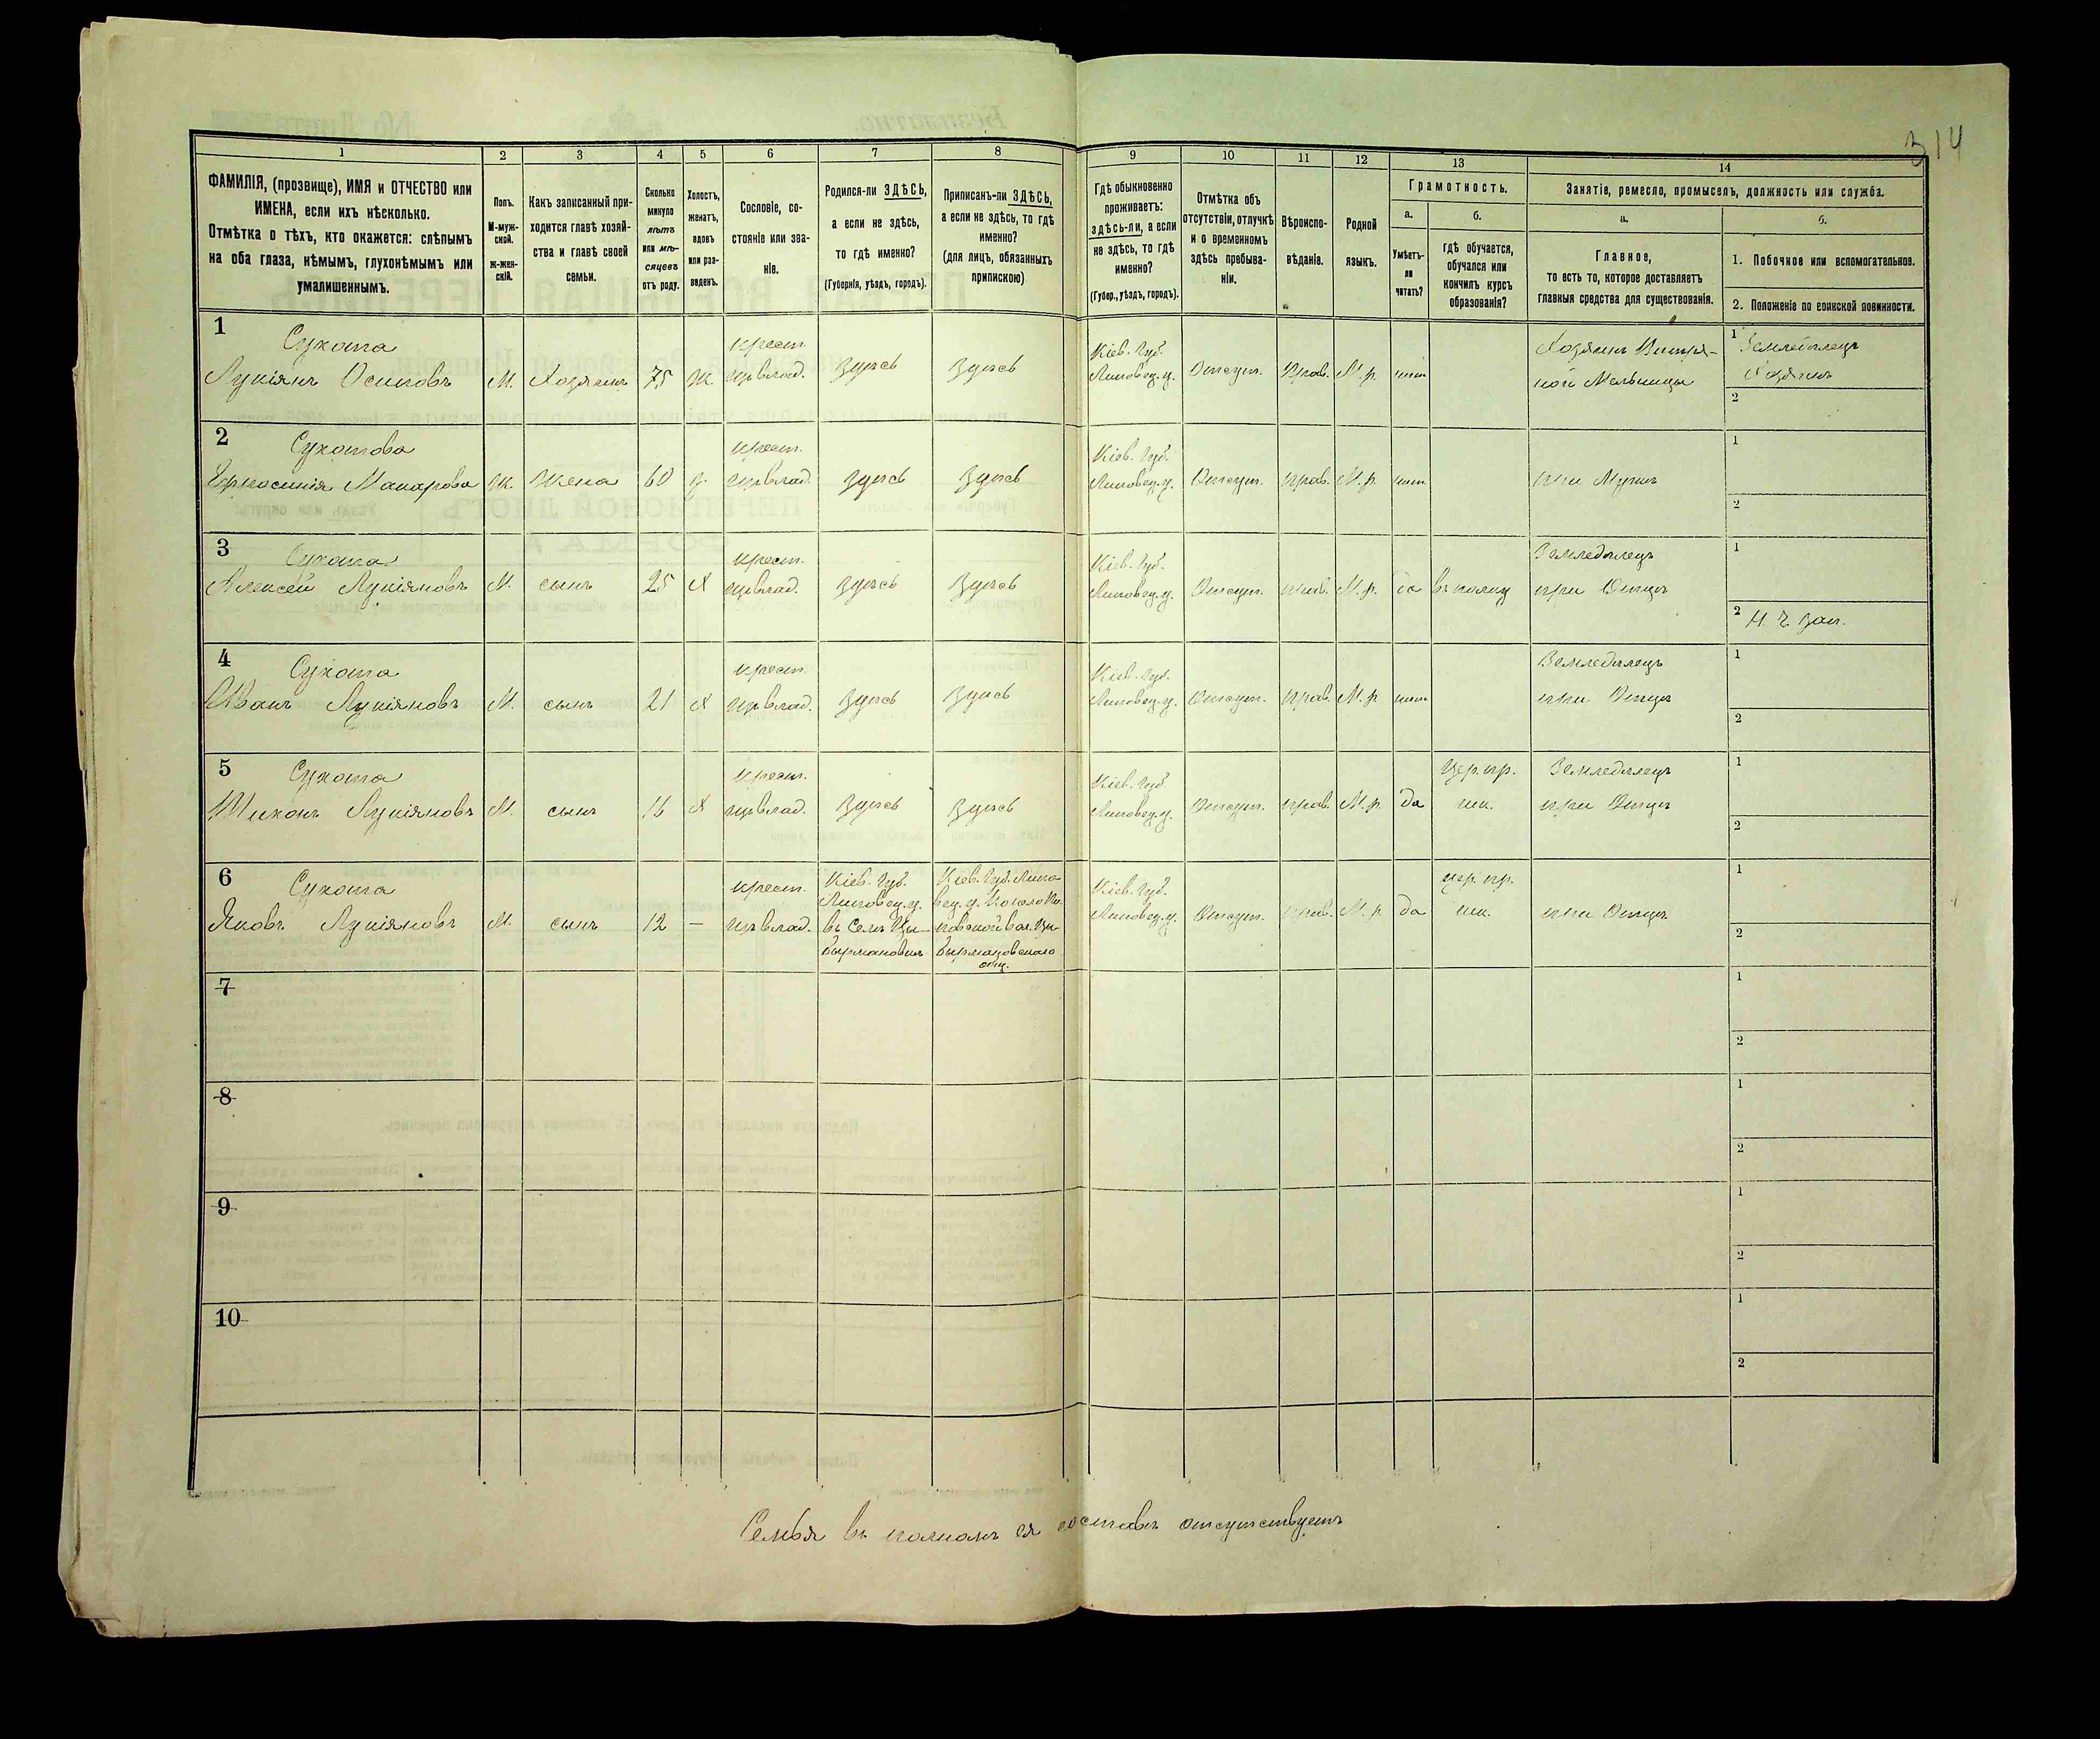 314
1
2
3
4
5
6
7
8
9
10
11
12
13
14
ФАМИЛІЯ, (прозвище), ИМЯ и ОТЧЕСТВО или
ИМЕНА, если ихъ нѣсколько.
Отмѣтка о тѣхъ, кто окажется: слѣпымъ
на оба глаза, нѣмымъ, глухонѣмымъ или
умалишеннымъ.
Полъ.
М-муж-
ской.
Ж-жен-
скій.
Какъ записанный при-
ходится главѣ хозяй-
ства и главѣ своей
семьи.
Сколько
минуло
лѣтъ
или мѣ-
сяцевъ
отъ роду.
Холостъ,
женатъ,
вдовъ
или раз-
веденъ.
Сословіе, со-
стояніе или зва-
ніе.
Родился-ли ЗДѢСЬ,
а если не здѣсь,
то гдѣ именно?
(Губернія, уѣздъ, городъ).
Приписанъ-ли ЗДѢСЬ,
а если не здѣсь, то гдѣ
именно?
(для лицъ, обязанныхъ
припискою)
Гдѣ обыкновенно
проживаетъ:
здѣсь-ли, а если
не здѣсь, то гдѣ
именно?
(Губер., уѣздъ, городъ).
Отмѣтка объ
отсутствіи, отлучкѣ
и о временномъ
здѣсь пребыва-
ніи.
Вѣроиспо-
вѣданіе.
Родной
языкъ.
Грамотность.
а.
Умѣетъ-
ли
читать?
б.
гдѣ обучается,
обучался или
кончилъ курсъ
образованія?
Занятіе, ремесло, промыселъ, должность или служба.
а.
Главное,
то есть то, которое доставляетъ
главныя средства для существованія.
б.
1. Побочное или вспомогательное.
2. Положеніе по воинской повинности.
1
Сухота
Лукіянъ Осиповъ
М.
Хозяинъ
75
ж.
крест.
здѣсь
здѣсь
Кіев. Губ.
Липовец. у.
Отсут.
Прав.
М.р.
нѣт
Хозяинъ Вѣтря-
ной Мельницы
1 Земледѣлецъ
Хозяинъ
2
2
Сухотова
Ефросинія Макарова
Ж.
Жена
60
з.
крест.
здѣсь
здѣсь
Кіев. Губ.
Липовец. у.
Отсут.
прав.
М.р.
нѣт
при Мужѣ
1
2
3
Сухота
Алексей Лукіяновъ
М.
сынъ
25
Х
крест.
здѣсь
здѣсь
Кіев. Губ.
Липовец. у.
Отсут.
прав.
М.р.
да
въ полку
Земледѣлецъ
при Отцѣ
1
2 Н. Ч. зап.
4
Сухота
Иванъ Лукіяновъ
М.
сынъ
21
Х
крест.
здѣсь
здѣсь
Кіев. Губ.
Липовец. у.
Отсут.
прав.
М.р.
нѣт
Земледѣлецъ
при Отцѣ
1
2
5
Сухота
Тихонъ Лукіяновъ
М.
сынъ
16
Х
крест.
здѣсь
здѣсь
Кіев. Губ.
Липовец. у.
Отсут.
прав.
М.р.
да
Цер. пр.
шк.
Земледѣлецъ
при Отцѣ
1
2
6
Сухота
Яковъ Лукіяновъ
М.
сынъ
12
—
крест.
Кіев. Губ.
Липовец. у.
въ Селѣ
Кіев. Губ. Липо-
вец. у.
Кіев. Губ.
Липовец. у.
Отсут.
прав.
М.р.
да
цер. пр.
шк.
при Отцѣ
1
2
7
1
2
8
1
2
9
1
2
10
1
2
Семья въ полномъ ея составѣ отсутствуетъ